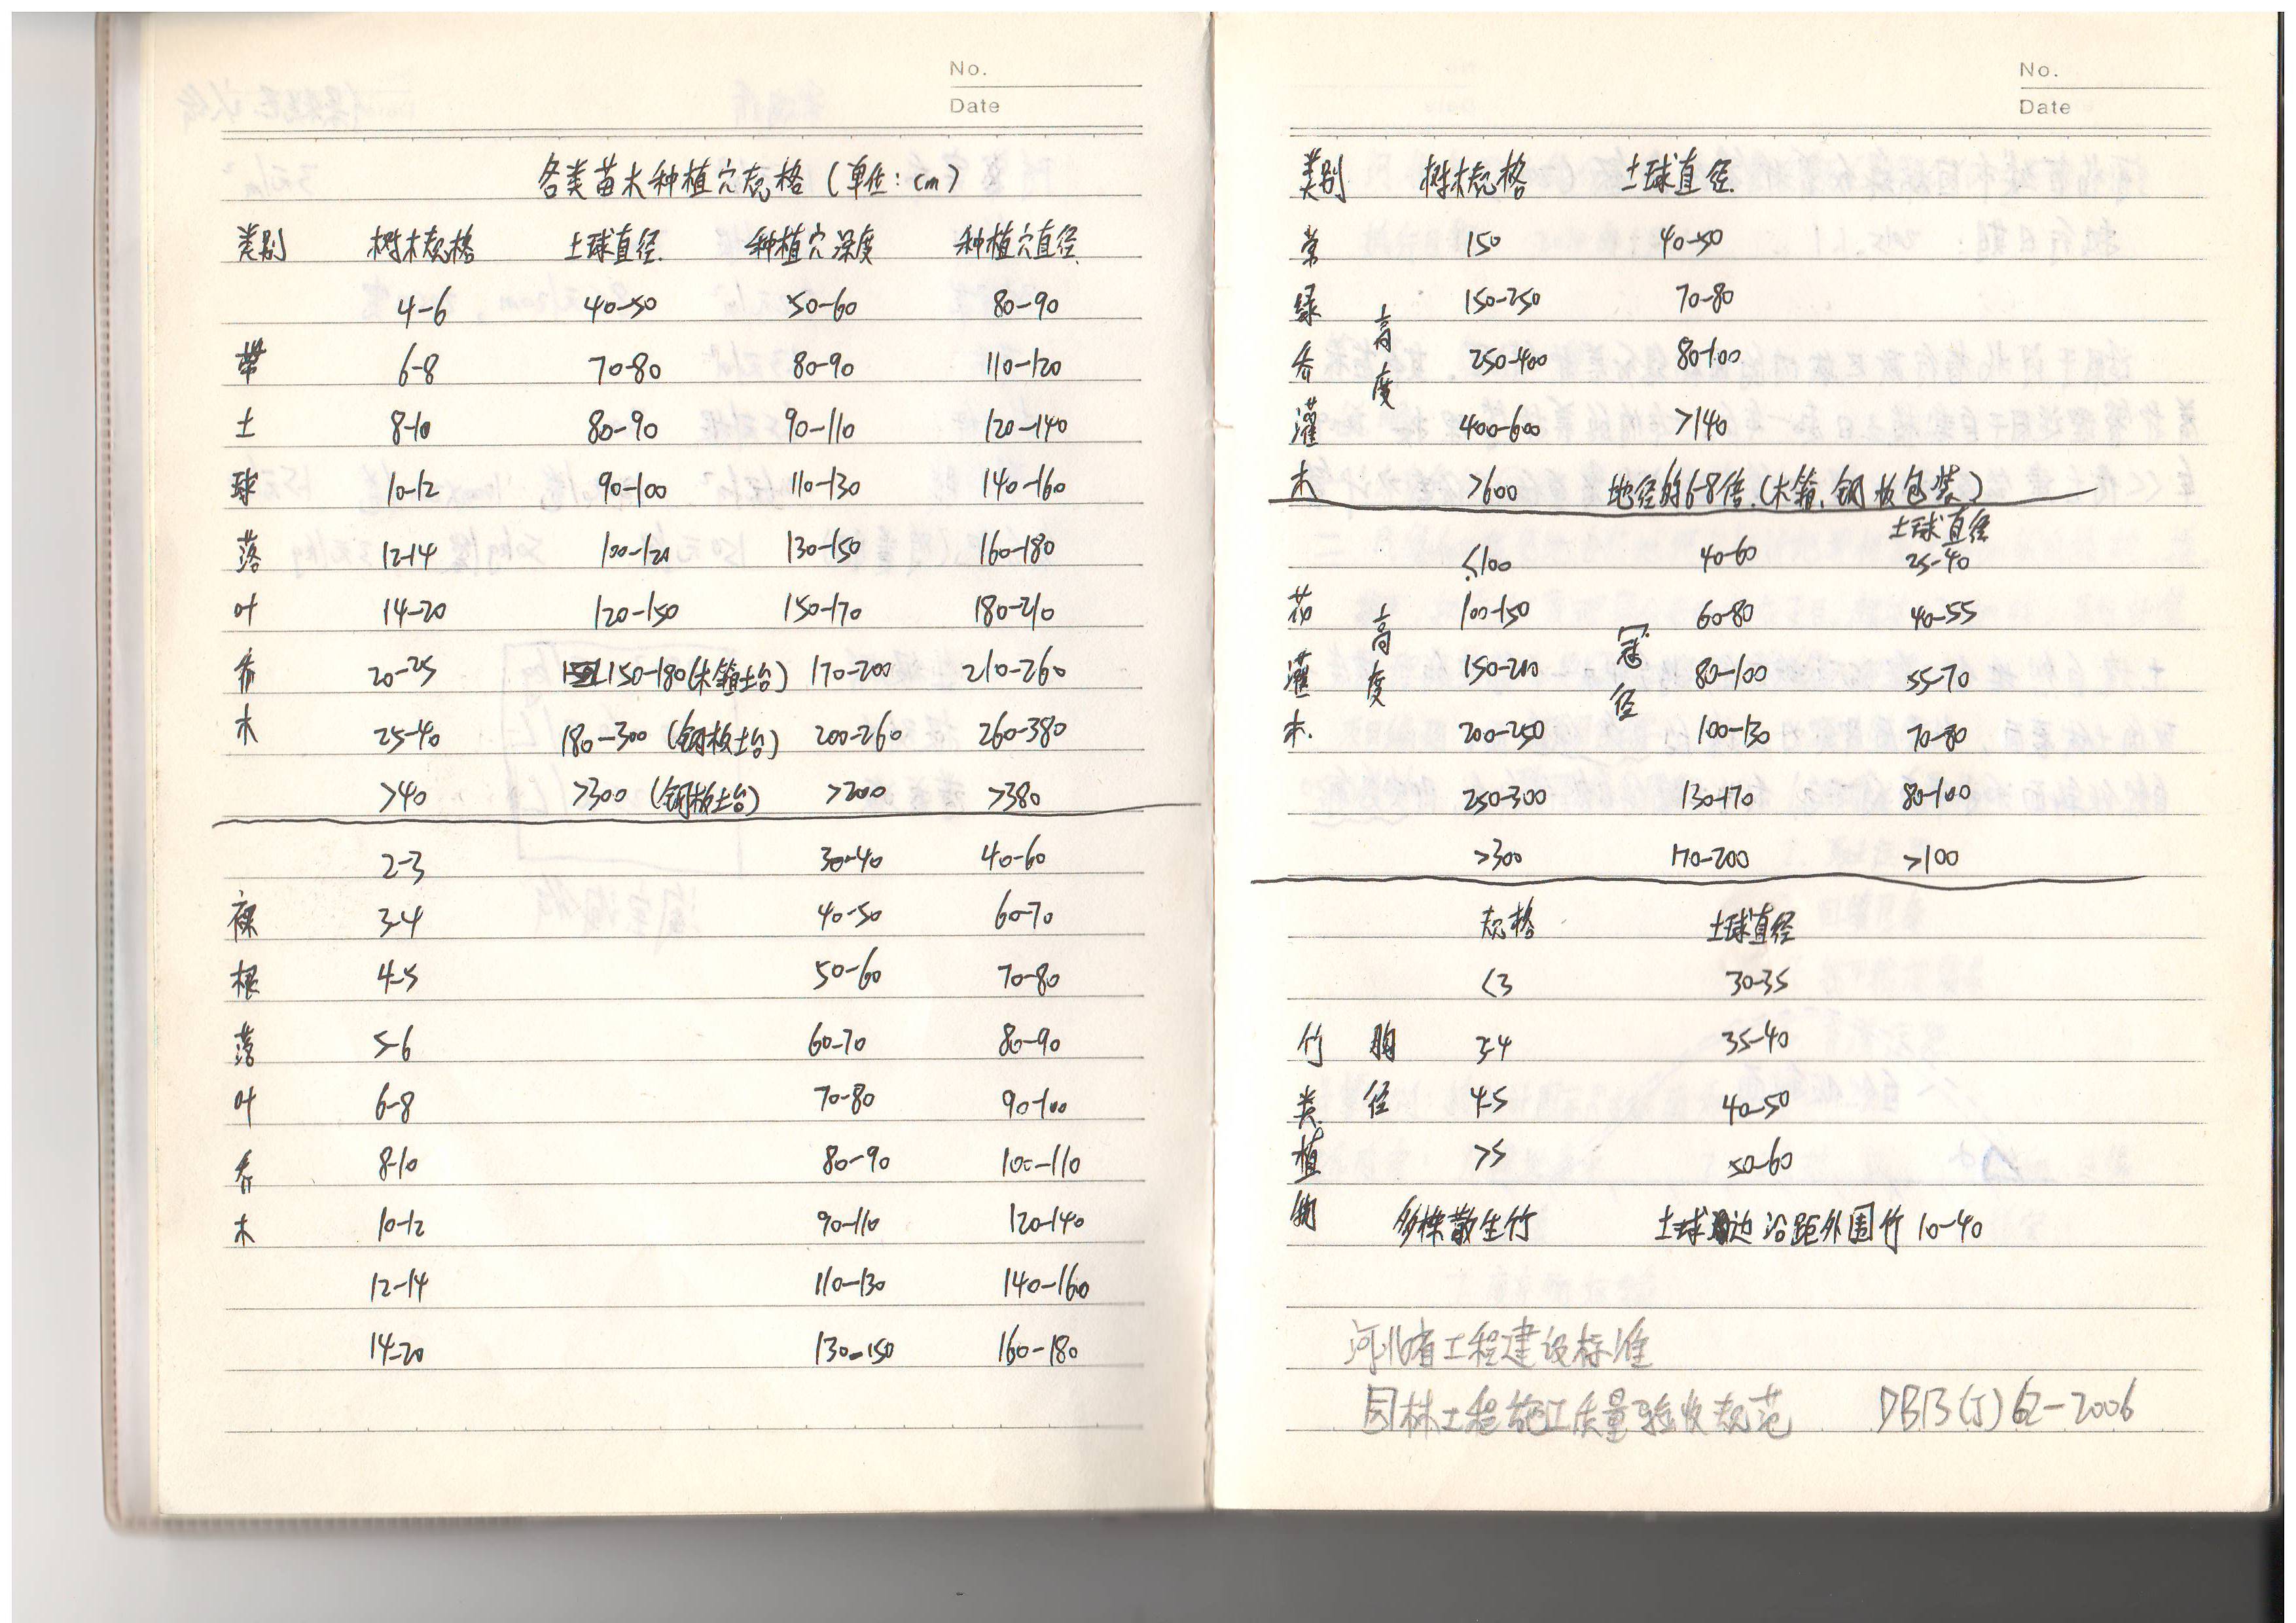 No.
Date
各类苗木种植穴规格(单位:cm)
类别 树木规格 土球直径 种植穴深度 种植穴直径
4-6 40-50 50-60 80-90
带 6-8 70-80 80-90 110-120
土 8-10 80-90 90-110 120-140
球 10-12 90-100 110-130 140-160
落 12-14 100-120 130-150 160-180
叶 14-20 120-150 150-170 180-210
乔 20-25 150-180(木箱土台) 170-200 210-260
木 25-40 180-300 (钢板土台) 200-260 260-380
>40 >300 (钢板土台) >200 >380
2-3 30-40 40-60
裸 3-4 40-50 60-70
根 4-5 50-60 70-80
落 5-6 60-70 80-90
叶 6-8 70-80 90-100
乔 8-10 80-90 100-110
木 10-12 90-110 120-140
12-14 110-130 140-160
14-20 130-150 160-180
No.
Date
类别 树木规格 土球直径
常 150 40-50
绿 高 150-250 70-80
乔 度 250-400 80-100
灌 400-600 >140
木 >600 地径的6-8倍.(木箱、钢板包装)
土球直径
≤100 40-60 25-40
花 高 100-150 冠 60-80 40-55
灌 度 150-200 径 80-100 55-70
木. 200-250 100-130 70-80
250-300 130-170 80-100
>300 170-200 >100
规格 土球直径
<3 30-35
竹 胸 3-4 35-40
类 径 4-5 40-50
植 >5 50-60
物 多株散生竹 土球边沿距外围竹 10-40
河北省工程建设标准
园林工程施工质量验收规范 DB13(J) 62-2006